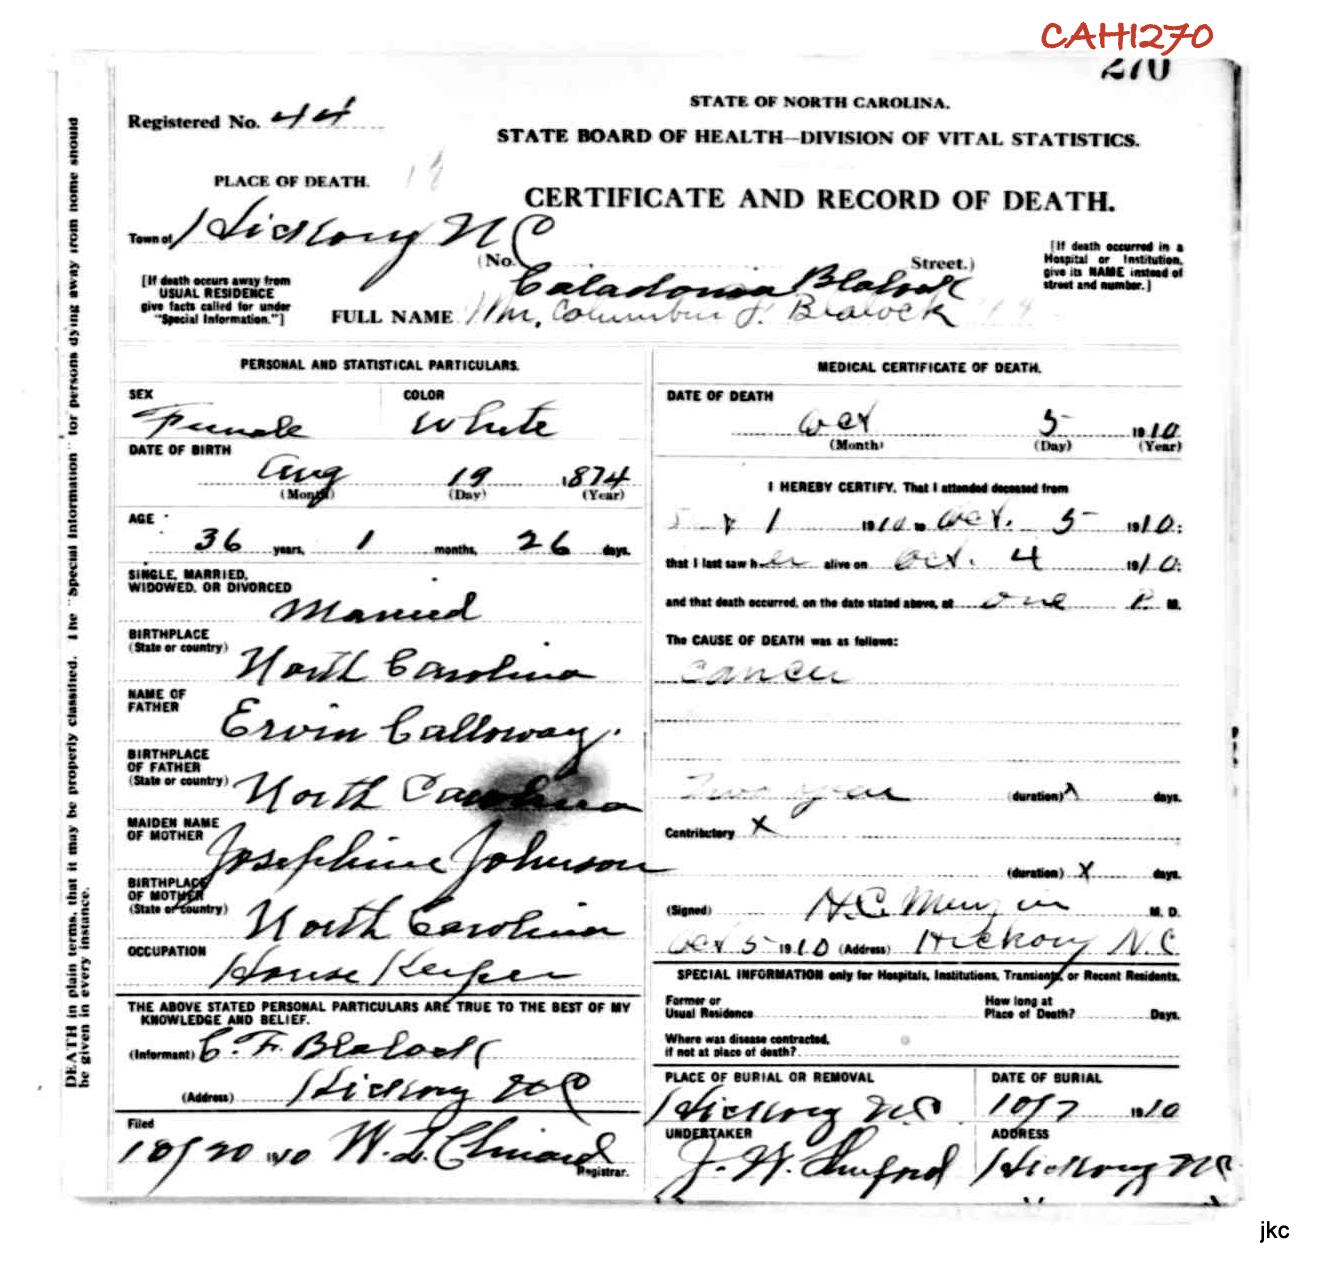 CAH1270
270
STATE OF NORTH CAROLINA.
Registered No. 44
STATE BOARD OF HEALTH—DIVISION OF VITAL STATISTICS.
PLACE OF DEATH.
CERTIFICATE AND RECORD OF DEATH.
Town of Hickory N C
(No. Street.)
[If death occurred in a
Hospital or Institution,
give its NAME instead of
street and number.]
[If death occurs away from
USUAL RESIDENCE
give facts called for under
"Special Information."]
Caladonia Blalock
FULL NAME Mrs. Columbus F. Blalock
PERSONAL AND STATISTICAL PARTICULARS.
SEX
Female
COLOR
White
DATE OF BIRTH
Aug 19 1874
(Month) (Day) (Year)
AGE
36 years, 1 months, 26 days.
SINGLE, MARRIED,
WIDOWED, OR DIVORCED
Married
BIRTHPLACE
(State or country)
North Carolina
NAME OF
FATHER
Ervin Calloway.
BIRTHPLACE
OF FATHER
(State or country)
North Carolina
MAIDEN NAME
OF MOTHER
Josephine Johnson
BIRTHPLACE
OF MOTHER
(State or country)
North Carolina
OCCUPATION
House Keeper
THE ABOVE STATED PERSONAL PARTICULARS ARE TRUE TO THE BEST OF MY
KNOWLEDGE AND BELIEF.
(Informant) C. F. Blalock
(Address) Hickory N C
Filed
10/20 1910 W. L. Clinard
Registrar.
MEDICAL CERTIFICATE OF DEATH.
DATE OF DEATH
Oct 5 1910
(Month) (Day) (Year)
I HEREBY CERTIFY, That I attended deceased from
1 1910 to Oct. 5 1910;
that I last saw her alive on Oct. 4 1910;
and that death occurred, on the date stated above, at one P. M.
The CAUSE OF DEATH was as follows:
Cancer
Two year (duration) days.
Contributory X
(duration) X days.
(Signed) H. C. M. D.
Oct 5 1910 (Address) Hickory N.C
SPECIAL INFORMATION only for Hospitals, Institutions, Transients, or Recent Residents.
Former or
Usual Residence
How long at
Place of Death? Days.
Where was disease contracted,
if not at place of death?
PLACE OF BURIAL OR REMOVAL
Hickory N C
DATE OF BURIAL
10/7 1910
UNDERTAKER
J. W. Shuford
ADDRESS
Hickory N C
DEATH in plain terms, that it may be properly classified. The "Special Information" for persons dying away from home should
be given in every instance.
jkc